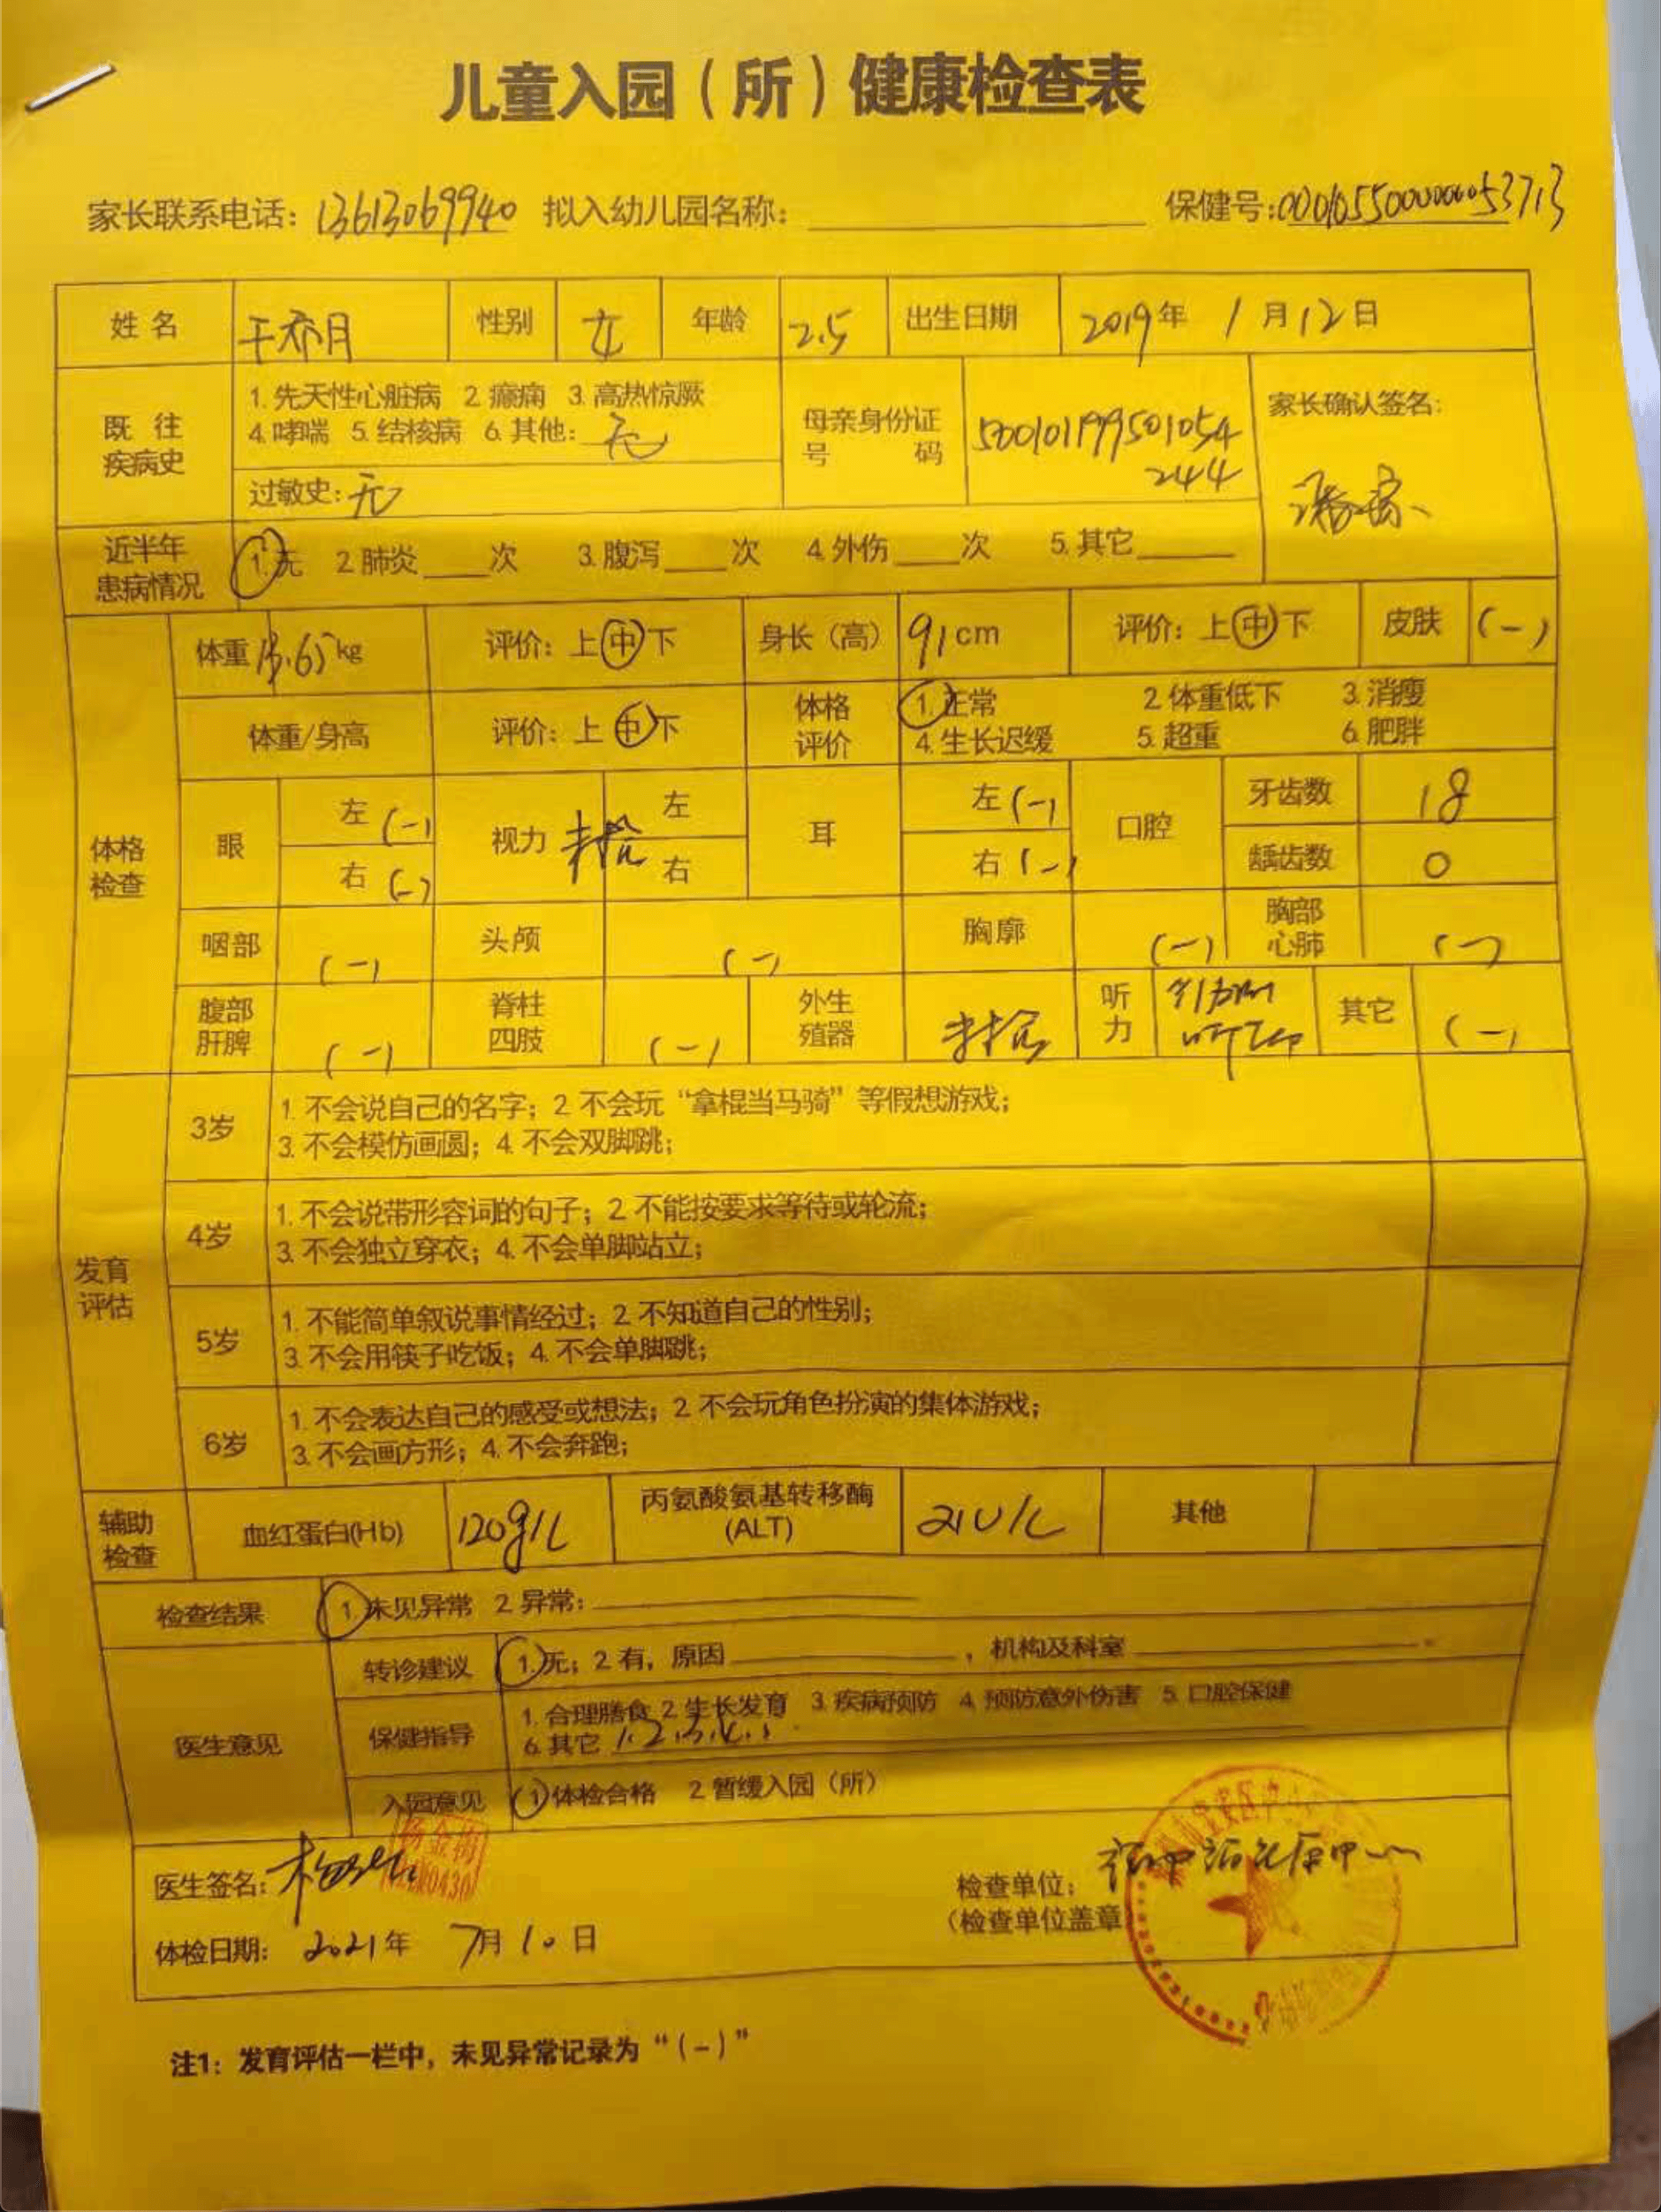 儿童入园（所）健康检查表
家长联系电话：13613069940 拟入幼儿园名称： 保健号：
姓名 于乔月 性别 女 年龄 2.5 出生日期 2019年 1月12日
既往疾病史
1. 先天性心脏病 2. 癫痫 3. 高热惊厥
4. 哮喘 5. 结核病 6. 其他：无
过敏史：无
母亲身份证号码
500101199501054
244
家长确认签名：
近半年患病情况 1. 无 2. 肺炎 次 3. 腹泻 次 4. 外伤 次 5. 其它
体格检查
体重 13.65 kg 评价：上 中 下 身长（高） 91cm 评价：上 中 下 皮肤 (-)
体重/身高 评价：上 中 下 体格评价 1. 正常 2. 体重低下 3. 消瘦
4. 生长迟缓 5. 超重 6. 肥胖
眼 左 (-) 视力 未检 左 耳 左 (-) 口腔 牙齿数 18
右 (-) 右 右 (-) 龋齿数 0
咽部 (-) 头颅 (-) 胸廓 (-) 胸部心肺 (-)
腹部肝脾 (-) 脊柱四肢 (-) 外生殖器 未检 听力 其它 (-)
发育评估
3岁 1. 不会说自己的名字；2. 不会玩“拿棍当马骑”等假想游戏；
3. 不会模仿画圆；4. 不会双脚跳；
4岁 1. 不会说带形容词的句子；2. 不能按要求等待或轮流；
3. 不会独立穿衣；4. 不会单脚站立；
5岁 1. 不能简单叙说事情经过；2. 不知道自己的性别；
3. 不会用筷子吃饭；4. 不会单脚跳；
6岁 1. 不会表达自己的感受或想法；2. 不会玩角色扮演的集体游戏；
3. 不会画方形；4. 不会奔跑；
辅助检查 血红蛋白(Hb) 120g/L 丙氨酸氨基转移酶(ALT) 21U/L 其他
检查结果 1. 未见异常 2. 异常：
医生意见
转诊建议 1. 无；2. 有，原因 ，机构及科室 。
保健指导 1. 合理膳食 2. 生长发育 3. 疾病预防 4. 预防意外伤害 5. 口腔保健
6. 其它 1.2.3.4.5.
入园意见 1. 体检合格 2. 暂缓入园（所）
医生签名： 检查单位：
（检查单位盖章
体检日期： 2021年 7月10日
注1：发育评估一栏中，未见异常记录为“(-)”